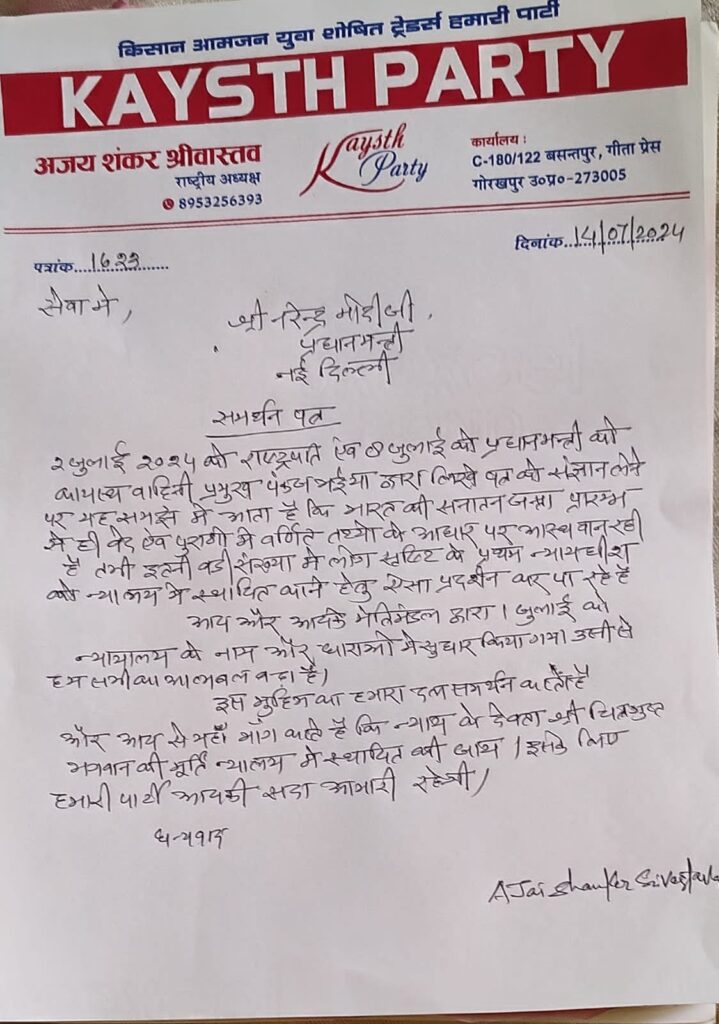 किसान आमजन युवा शोषित ट्रेडर्स हमारी पार्टी
KAYSTH PARTY
अजय शंकर श्रीवास्तव
राष्ट्रीय अध्यक्ष
8953256393
Kaysth
Party
कार्यालय :
C-180/122 बसन्तपुर, गीता प्रेस
गोरखपुर उ०प्र०-273005
पत्रांक....1633.........
दिनांक...14/07/2024
सेवा मे,
श्री नरेन्द्र मोदी जी,
प्रधानमन्त्री
नई दिल्ली
समर्थन पत्र
2 जुलाई 2024 को राष्ट्रपति एंव 8 जुलाई को प्रधानमन्त्री को
कायास्थ वाहिनी प्रमुख पंकज भईया द्वारा लिखे पत्र को संज्ञान लेने
पर यह समझ मे आता है कि भारत की सनातन प्रारम्भ
से ही वेद एंव पुराणो मे वर्णित तथ्यो के आधार पर आस्थावान रही
है तभी इतनी बडी संख्या मे लोग सृष्टि के प्रथम न्यायधीश
को न्यालय मे स्थापित कराने हेतु ऐसा प्रदर्शन कर पा रहे है
आप और आपके मंत्रिमंडल द्वारा 1 जुलाई को
न्यायालय के नाम और धाराओ मे सुधार किया गया उसी से
हम सभी का आत्मबल बढा है।
इस मुहिम का हमारा दल समर्थन करता है
और आप से यहाँ माँग करते है कि न्याय के देवता श्री चित्रगुप्त
भगवान की मूर्ति न्यालय मे स्थापित की जाय। इसके लिए
हमारी पार्टी आपकी सदा आभारी रहेगी।
धन्यवाद
AJai Shanker Srivastava